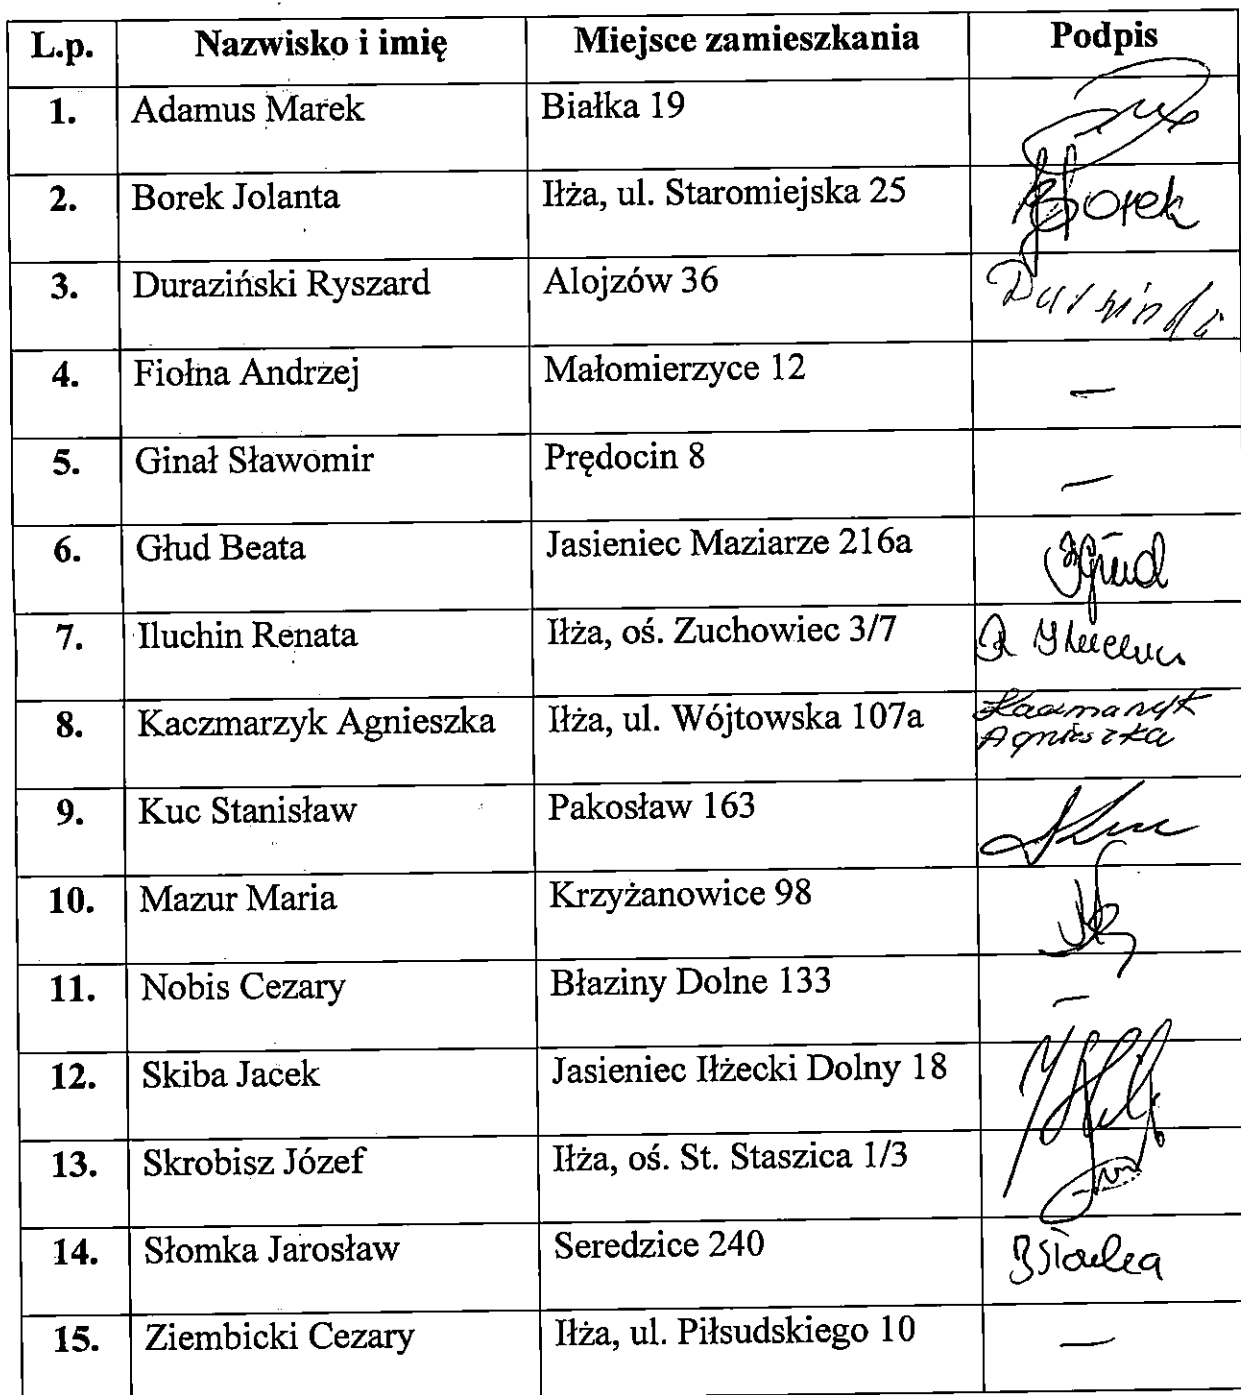 L.p. Nazwisko i imię Miejsce zamieszkania Podpis
1. Adamus Marek Białka 19
2. Borek Jolanta Iłża, ul. Staromiejska 25 Borek
3. Duraziński Ryszard Alojzów 36
4. Fiołna Andrzej Małomierzyce 12 —
5. Ginał Sławomir Prędocin 8 —
6. Głud Beata Jasieniec Maziarze 216a BGłud
7. Iluchin Renata Iłża, oś. Zuchowiec 3/7 R Iluchin
8. Kaczmarzyk Agnieszka Iłża, ul. Wójtowska 107a Kaczmarzyk
Agnieszka
9. Kuc Stanisław Pakosław 163
10. Mazur Maria Krzyżanowice 98
11. Nobis Cezary Błaziny Dolne 133 —
12. Skiba Jacek Jasieniec Iłżecki Dolny 18
13. Skrobisz Józef Iłża, oś. St. Staszica 1/3
14. Słomka Jarosław Seredzice 240
15. Ziembicki Cezary Iłża, ul. Piłsudskiego 10 —